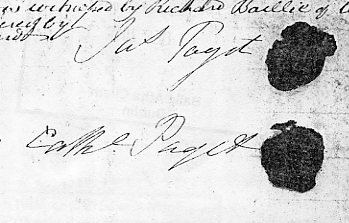 witnessed by Richard Baillie of
Jas Paget
Cathe Paget